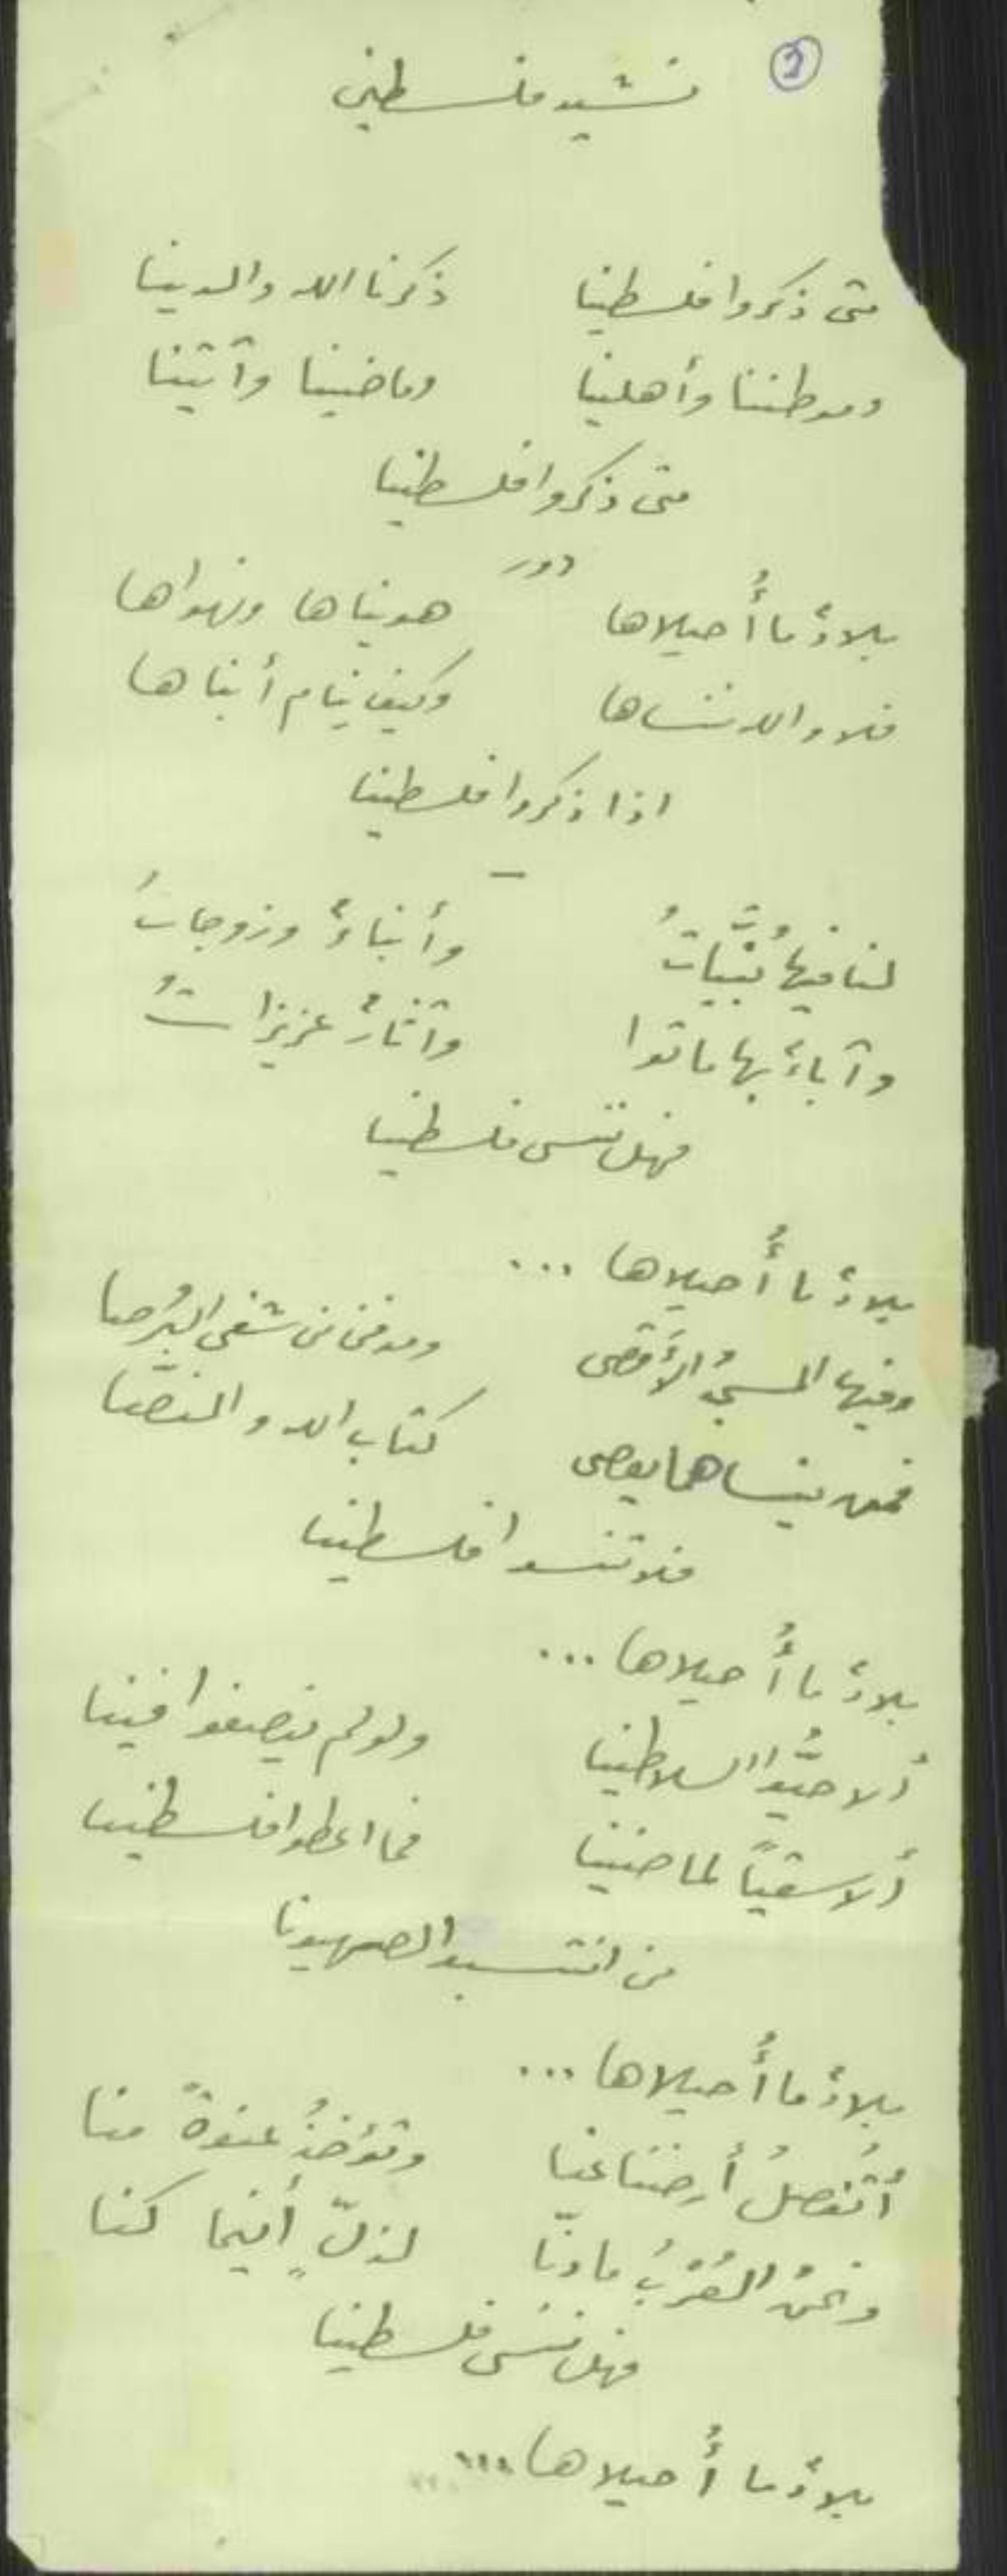 2
نشيد فلسطين
متى ذكروا فلسطينا ذكرنا الله والدينا
وموطننا وأهلينا وماضينا وآتينا
متى ذكروا فلسطينا
دور
بلادٌ ما أُحيلاها هويناها ونهواها
فلا والله ننساها وكيف ينام أبناها
اذا ذكروا فلسطينا
لنا فيها بُنَيَّاتُ وأبناءٌ وزوجاتُ
وآباءٌ بها ماتوا وآثارٌ عزيزاتُ
فهل ننسى فلسطينا
بلادٌ ما أُحيلاها ...
وفيها المسجدُ الأَقصى ومدفن من شفى البُرصا
فمن ينساهما يعصى كتاب الله والنصّا
فلا تنسوا فلسطينا
بلادٌ ما أُحيلاها ...
ألا حيُّوا السلاطينا ولو لم ينصفوا فينا
ألا سقياً لماضينا فما اعطوا فلسطينا
من انتسبوا لصهيونا
بلادٌ ما أُحيلاها ...
أتُفصلُ أرضُنا عنا وتؤخذُ عنوةً منا
ونحن العُرْبُ ما دِنّا لذلٍّ أينما كنا
فهل ننسى فلسطينا
بلادٌ ما أُحيلاها ...